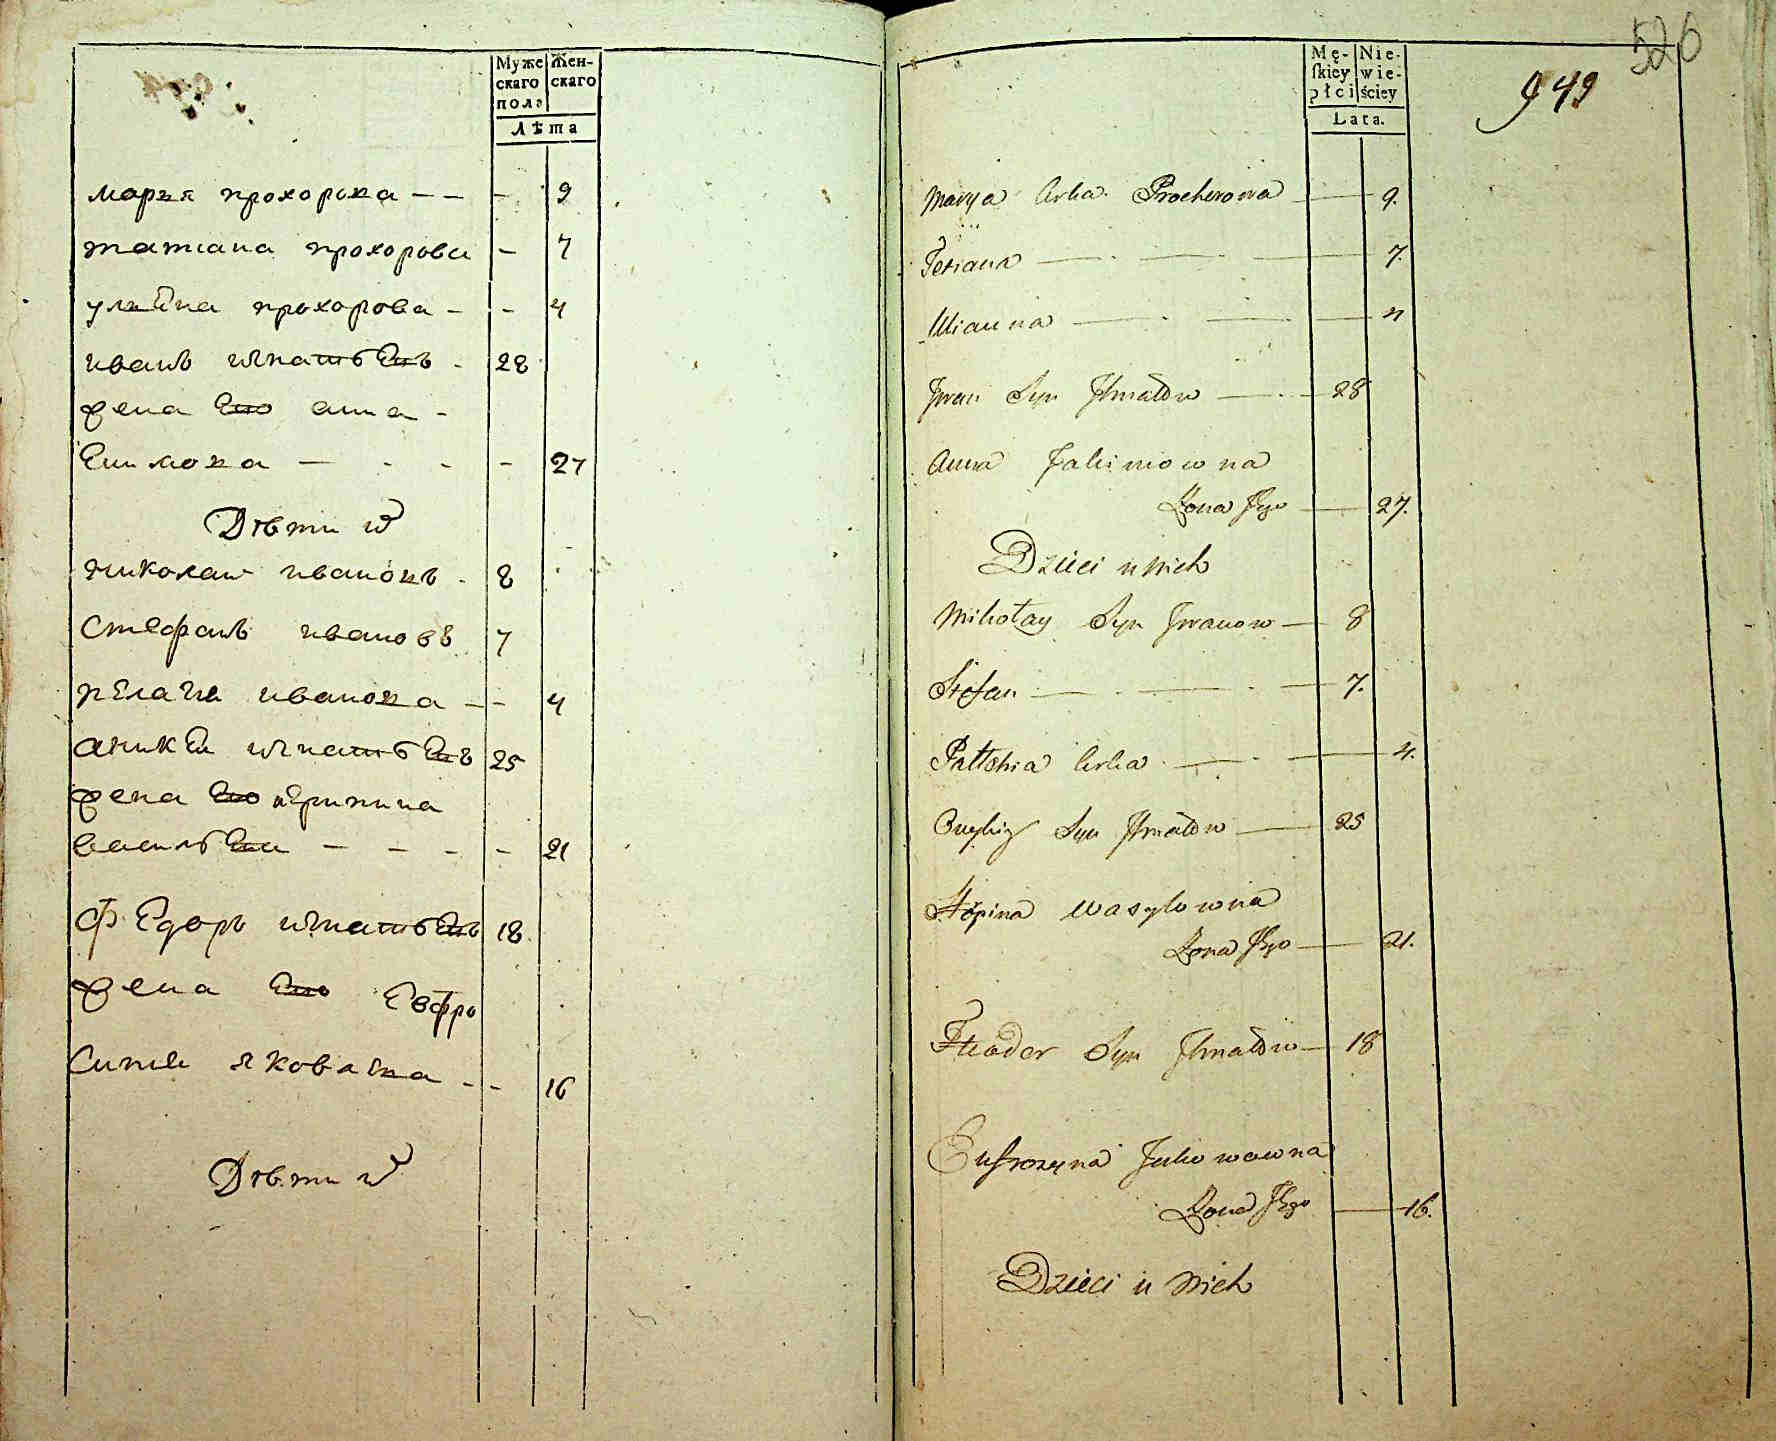 Муже Жен-
скаго скаго
пола
Лѣта
марья прохорова - - - 9
татиана прохорова - 7
улияна прохорова - - 4
иванъ игнатьевъ - 28
жена ево анна -
екимова - - - - 27
Дѣти их
николаи ивановъ - 8
стефанъ ивановъ 7
пелагея иванова - - 4
аникеи игнатьевъ 25
жена ево агрипина
васильева - - - - 21
Федоръ игнатьевъ 18
жена ево Евфро
синия яковлева - - 16
Дѣти их
526
Mę- Nie-
skiey wie-
płci ściey
949
Lata.
Marya Crka Prochorowa — 9.
Tetiana — . — . — 7.
Ulianna — . — 4
Jwan Syn Jhnatow — . — 28
Anna Jakimowna
Żona Jego — 27.
Dzieci u Nich
Mikołay Syn Jwanow — 8
Stefan — . — . — 7.
Pałahia Crka — . — 4.
Syn Jhnatow — 25
Hrypina Wasylowna
Żona Jego — 21.
Fteodor Syn Jhnatow — 18
Eufrozyna Jakowowna
Żona Jego — 16.
Dzieci u Nich